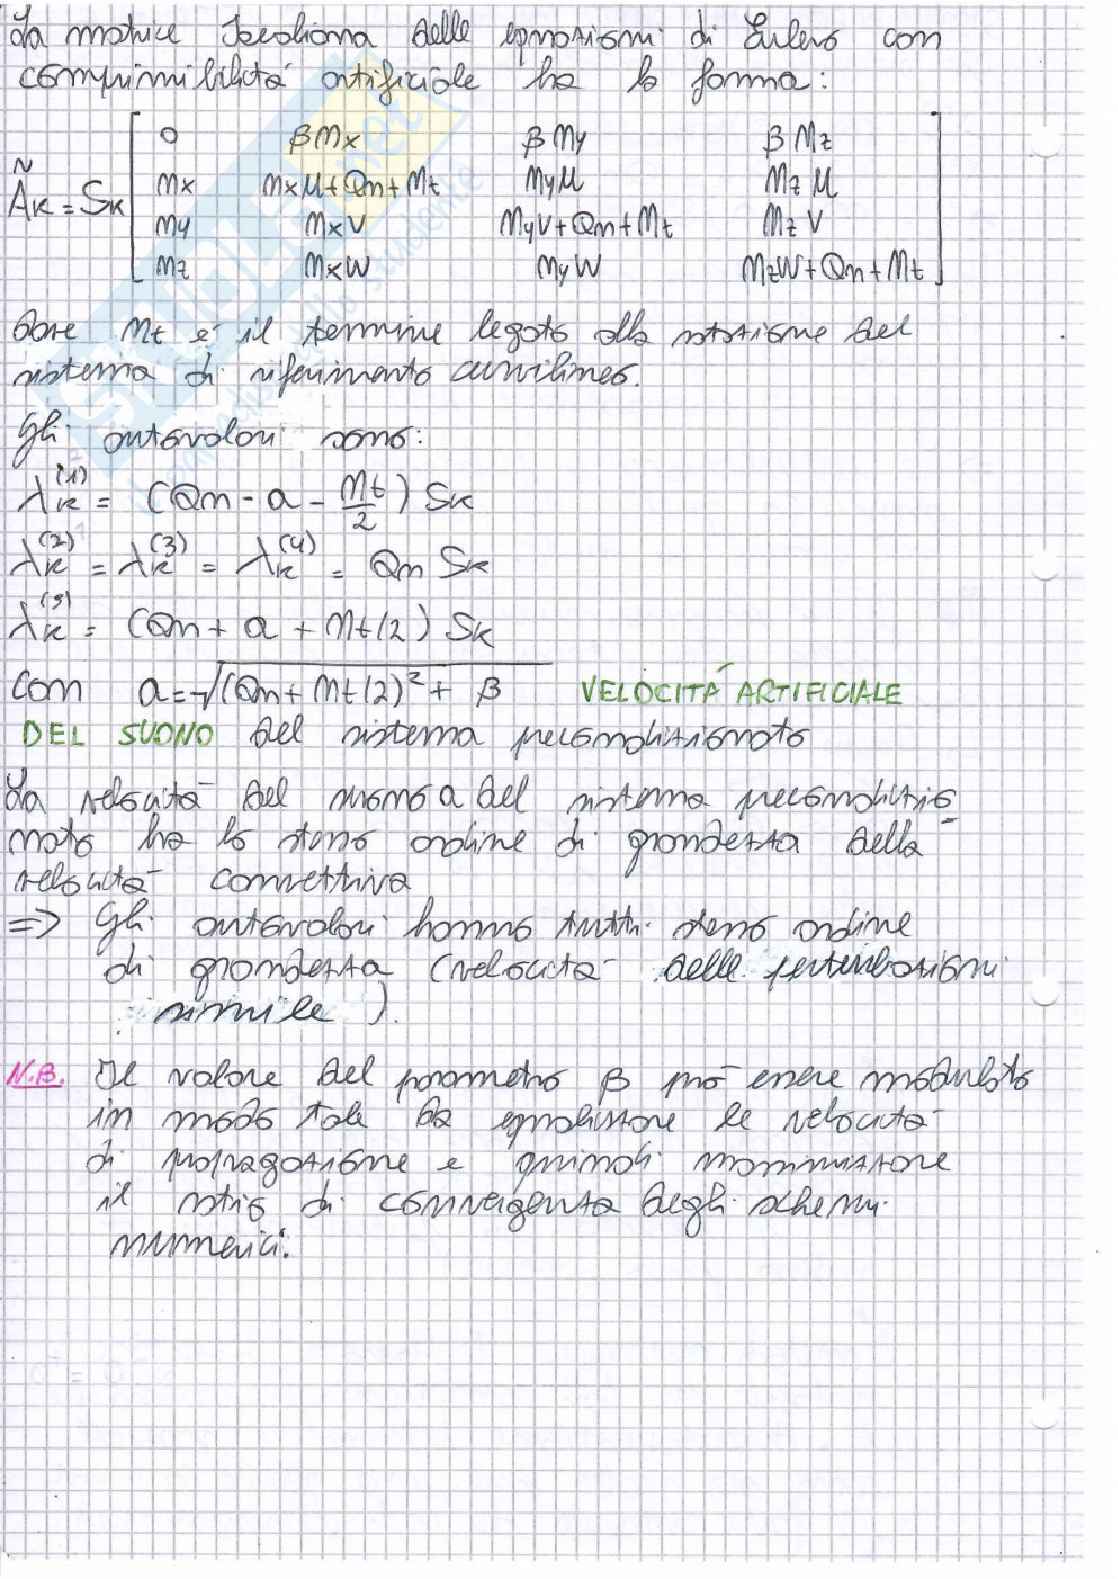 La matrice Jacobiana delle equazioni di Eulero con
comprimibilità artificiale ha la forma:
Ãκ = Sκ [ 0 βnx βny βnz
nx nxU+Qn+nt nyU nzU
ny nxV nyV+Qn+nt nzV
nz nxW nyW nzW+Qn+nt ]
dove nt è il termine legato alla rotazione del
sistema di riferimento curvilineo.
Gli autovalori sono:
λκ^(1) = (Qn - a - nt/2) Sκ
λκ^(2) = λκ^(3) = λκ^(4) = Qn Sκ
λκ^(5) = (Qn + a + nt/2) Sκ
con a = √((Qn + nt/2)² + β) VELOCITÀ ARTIFICIALE
DEL SUONO del sistema precondizionato
La velocità del suono a del sistema precondizio
nato ha lo stesso ordine di grandezza della
velocità convettiva
=> Gli autovalori hanno tutti stesso ordine
di grandezza (velocità delle perturbazioni
simile).
N.B. Il valore del parametro β può essere modulato
in modo tale da equalizzare le velocità
di propagazione e quindi massimizzare
il ratio di convergenza degli schemi
numerici.
SKUOLA.net